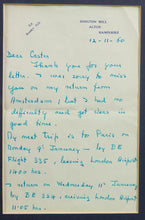 SHALDEN HILL
ALTON
HAMPSHIRE
12-11-60
Dear Carter
Thank you for your
letter. I was sorry to miss
you on my return from
Amsterdam, but I had no
difficulty and got clear in
good time.
My next trip is to Paris on
Monday 9th January - by BE
Flight 335, leaving London Airport
1400 hrs.
return on Wednesday 11th January,
by BE 334, arriving London Airport
11.05 hrs.